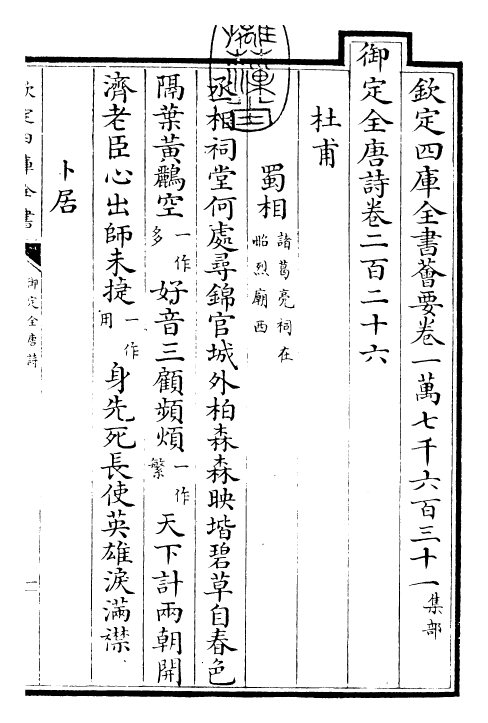 欽定四庫全書薈要卷一萬七千六百三十一集部
御定全唐詩卷二百二十六
杜甫
蜀相諸葛亮祠在昭烈廟西
丞相祠堂何處尋錦官城外柏森森映堦碧草自春色
隔葉黃鸝空一作多好音三顧頻煩一作繁天下計兩朝開
濟老臣心出師未捷一作用身先死長使英雄淚滿襟
卜居
欽定四庫全書
御定全唐詩
一